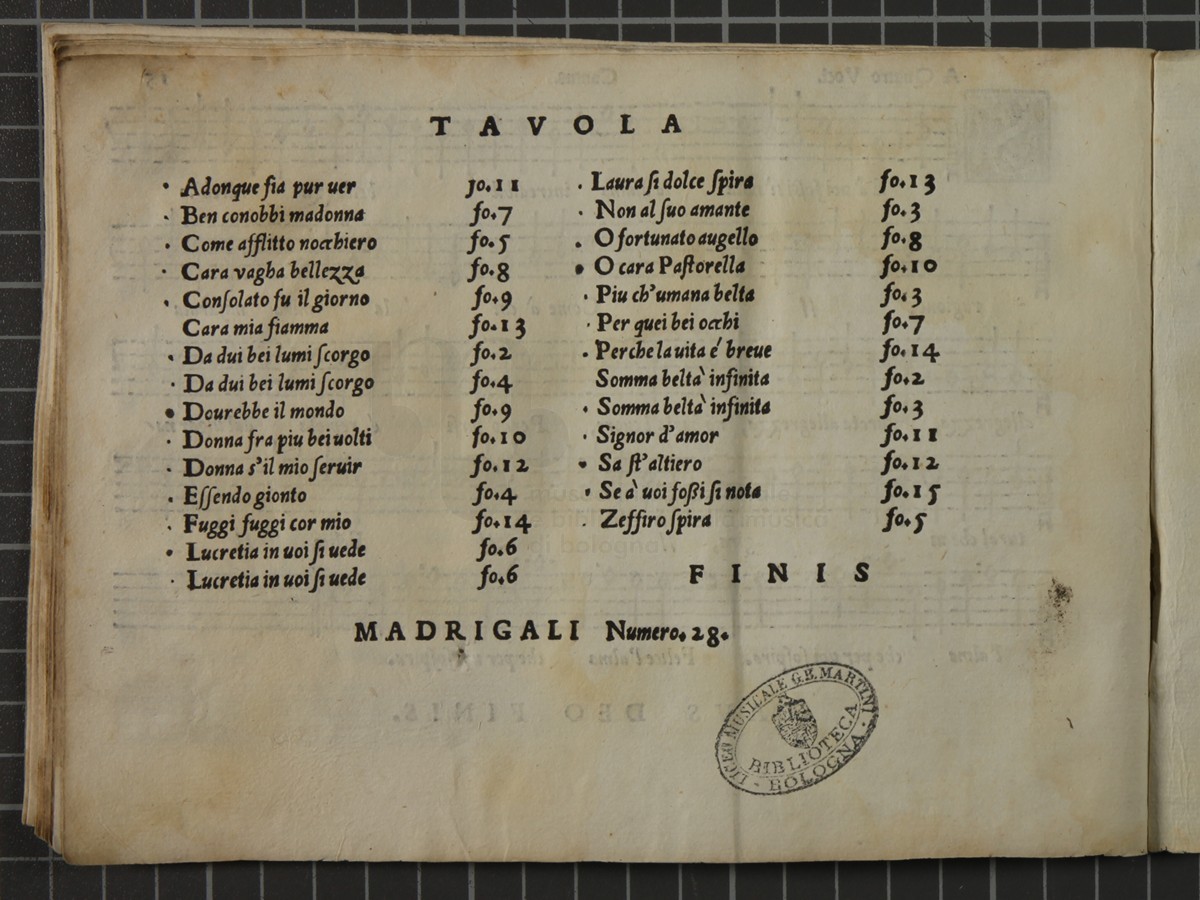 TAVOLA
Adonque sia pur uer fo.11
Ben conobbi madonna fo.7
Come afflitto nocchiero fo.5
Cara vagha bellezza fo.8
Conſolato fu il giorno fo.9
Cara mia fiamma fo.13
Da dui bei lumi ſcorgo fo.2
Da dui bei lumi ſcorgo fo.4
Dourebbe il mondo fo.9
Donna fra piu bei uolti fo.10
Donna s'il mio ſeruir fo.12
Eſſendo gionto fo.4
Fuggi fuggi cor mio fo.14
Lucretia in uoi ſi uede fo.6
Lucretia in uoi ſi uede fo.6
Laura ſi dolce ſpira fo.13
Non al ſuo amante fo.3
O fortunato augello fo.8
O cara Paſtorella fo.10
Piu ch'umana belta fo.3
Per quei bei occhi fo.7
Perche la uita é breue fo.14
Somma beltà infinita fo.2
Somma beltà infinita fo.3
Signor d'amor fo.11
Sa ſt'altiero fo.12
Se à uoi foßi ſi nota fo.15
Zeffiro ſpira fo.5
FINIS
MADRIGALI Numero.28.
LICEO MUSICALE G.B. MARTINI
BIBLIOTECA
BOLOGNA